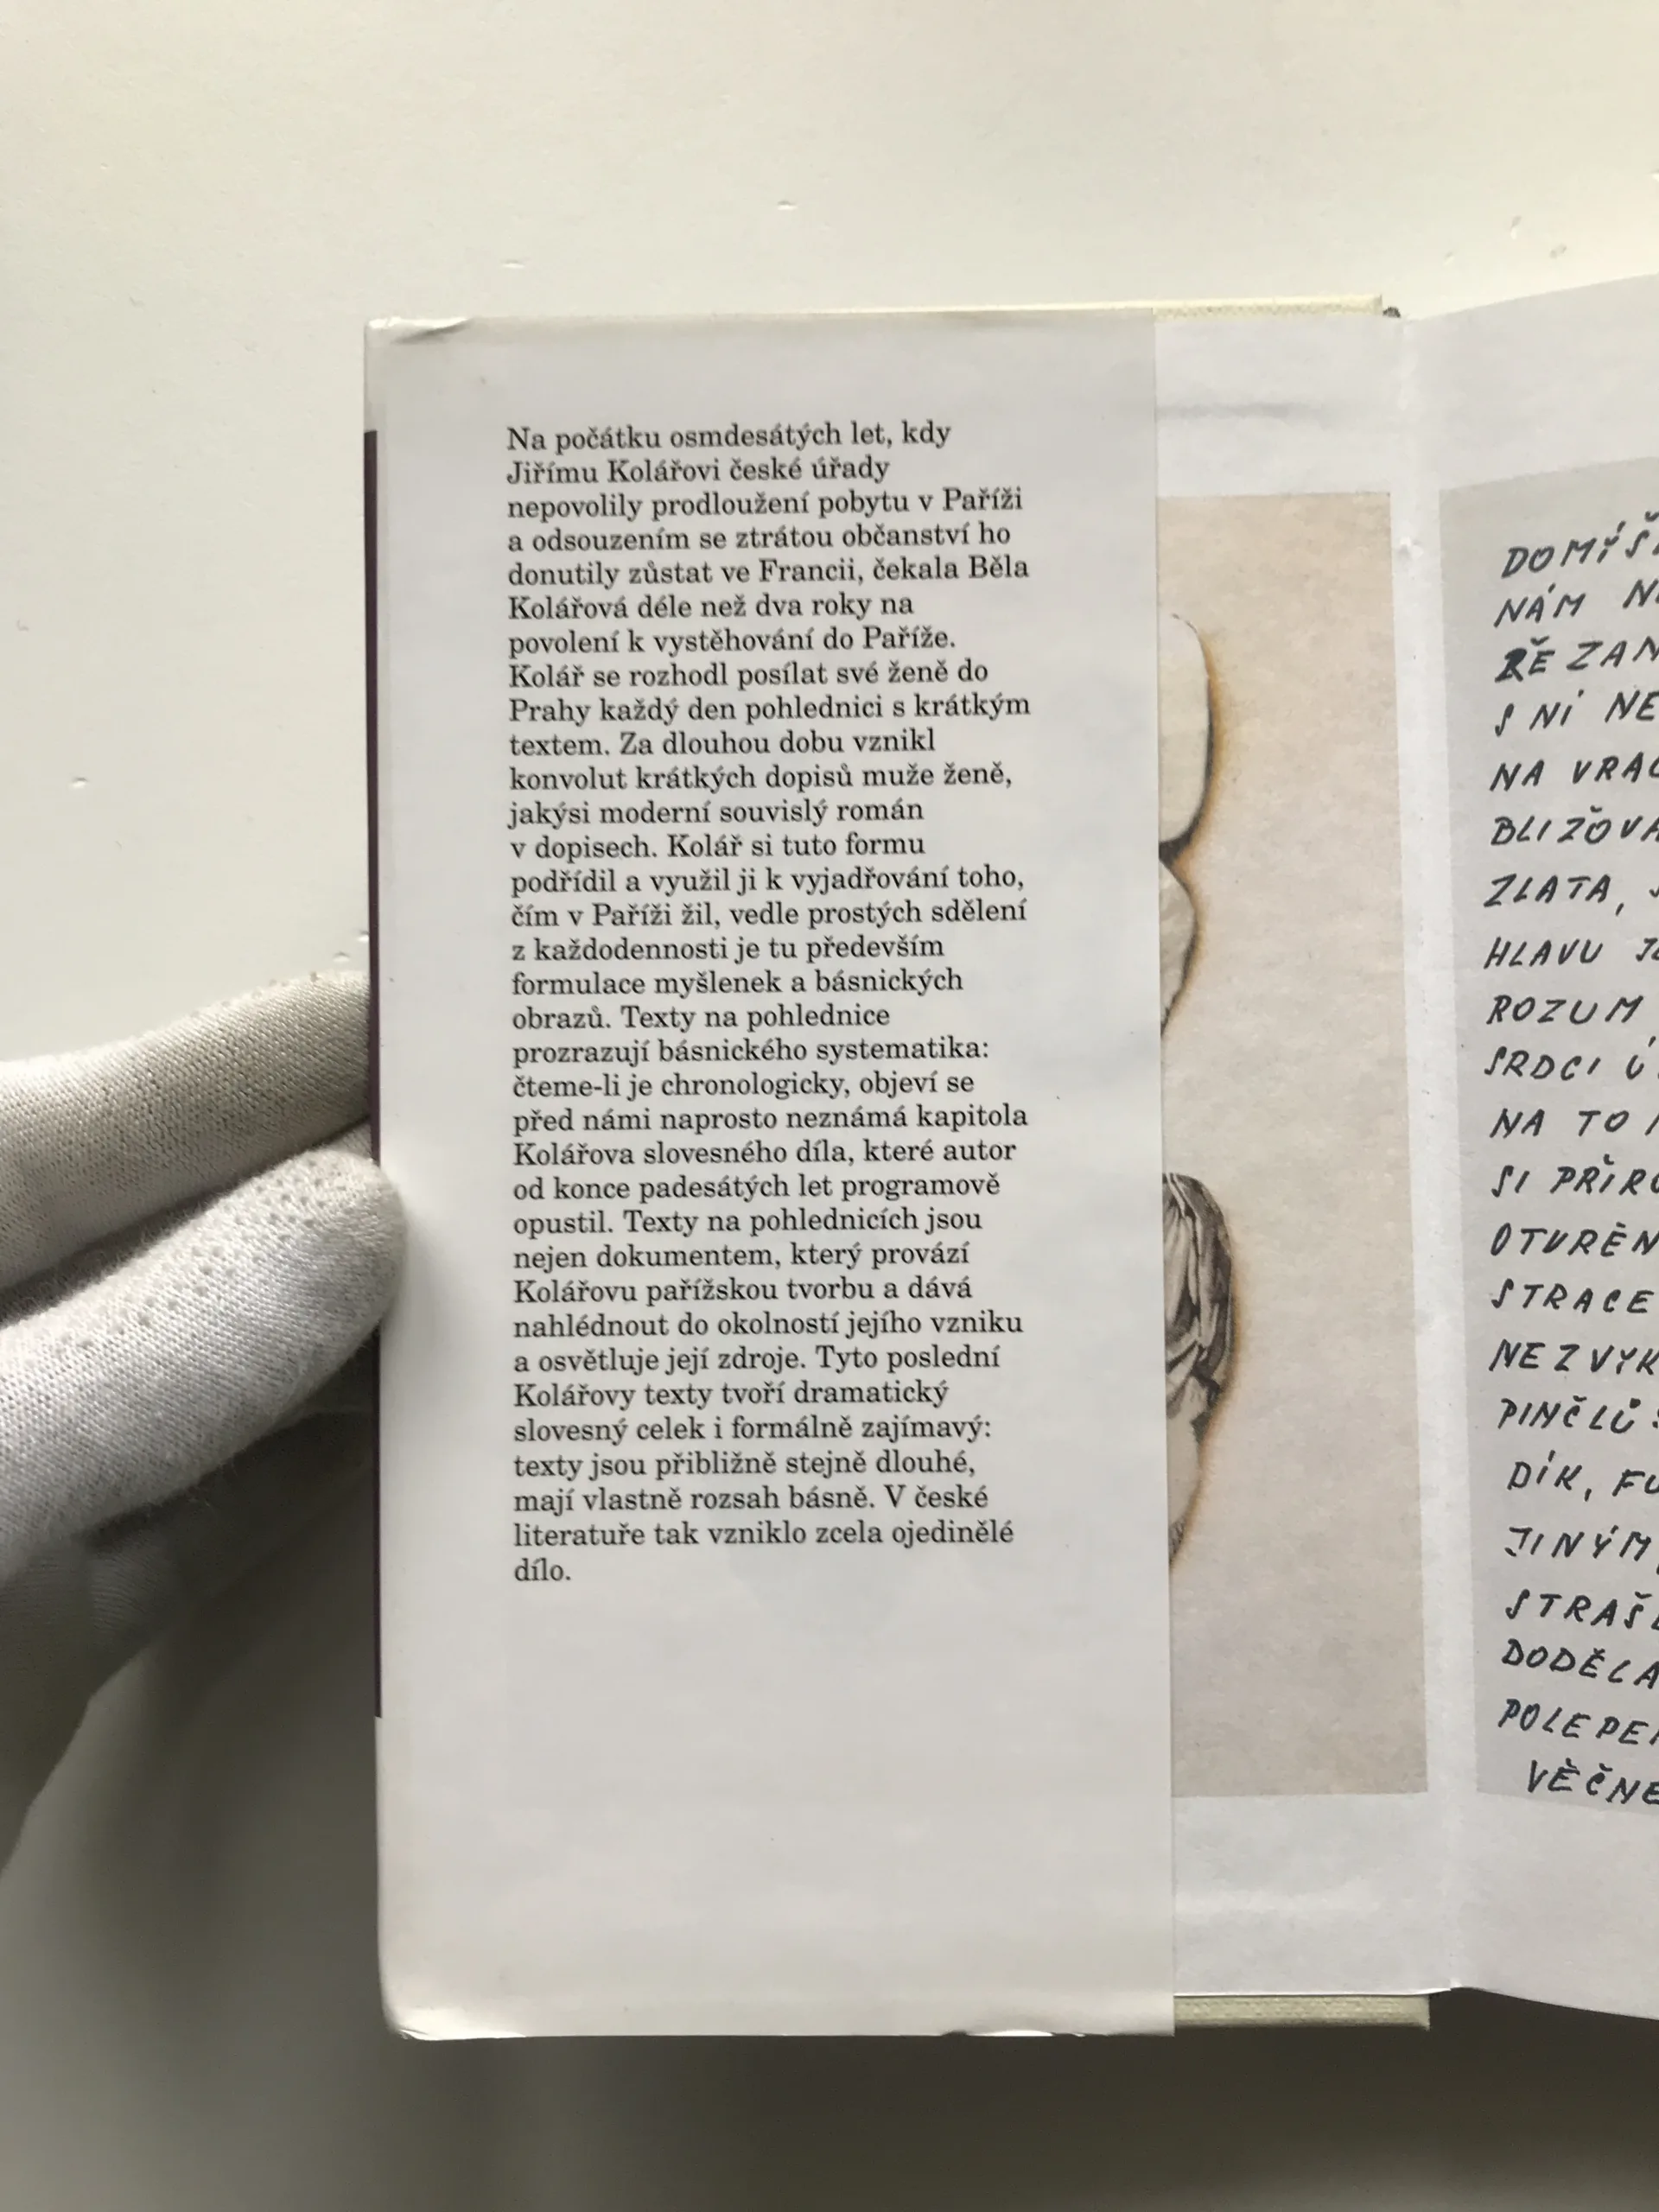 Na počátku osmdesátých let, kdy
Jiřímu Kolářovi české úřady
nepovolily prodloužení pobytu v Paříži
a odsouzením se ztrátou občanství ho
donutily zůstat ve Francii, čekala Běla
Kolářová déle než dva roky na
povolení k vystěhování do Paříže.
Kolář se rozhodl posílat své ženě do
Prahy každý den pohlednici s krátkým
textem. Za dlouhou dobu vznikl
konvolut krátkých dopisů muže ženě,
jakýsi moderní souvislý román
v dopisech. Kolář si tuto formu
podřídil a využil ji k vyjadřování toho,
čím v Paříži žil, vedle prostých sdělení
z každodennosti je tu především
formulace myšlenek a básnických
obrazů. Texty na pohlednice
prozrazují básnického systematika:
čteme-li je chronologicky, objeví se
před námi naprosto neznámá kapitola
Kolářova slovesného díla, které autor
od konce padesátých let programově
opustil. Texty na pohlednicích jsou
nejen dokumentem, který provází
Kolářovu pařížskou tvorbu a dává
nahlédnout do okolností jejího vzniku
a osvětluje její zdroje. Tyto poslední
Kolářovy texty tvoří dramatický
slovesný celek i formálně zajímavý:
texty jsou přibližně stejně dlouhé,
mají vlastně rozsah básně. V české
literatuře tak vzniklo zcela ojedinělé
dílo.
DOMÝŠ
NÁM
ŽE ZAN
S NÍ NE
NA VRAC
BLIŽOVA
ZLATA,
HLAVU
ROZUM
SRDCI
NA TO
SI PŘIRO
OTVRĚN
STRACE
NEZVYK
PINČLŮ
DÍK, FU
JINÝM
STRAŠ
DODĚLA
POLEPE
VĚČNE